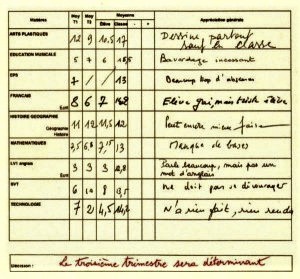 Matières Moy T1 Moy T2 Moyenne Appréciation générale
Elève Classe - +
ARTS PLASTIQUES 12 9 10,5 17 Dessine partout sauf la classe
EDUCATION MUSICALE 5 7 6 Bavardage incessant
EPS 7 / / 13 Beaucoup trop d'absences
FRANCAIS 8 6 7 Elève gai, mais triste élève
Ecrit
HISTOIRE GEOGRAPHIE 11 12 11,5 12 Peut encore mieux faire
Géographie
Histoire
MATHEMATIQUES 7,5 13 Manque de bases
Ecrit
LV1 anglais 3 3 3 Parle beaucoup, mais pas un mot d'anglais
Ecrit
SVT 6 8 Ne doit pas se décourager
TECHNOLOGIE 7 2 4,5 N'a rien fait, rien rendu
Le troisième trimestre sera déterminant